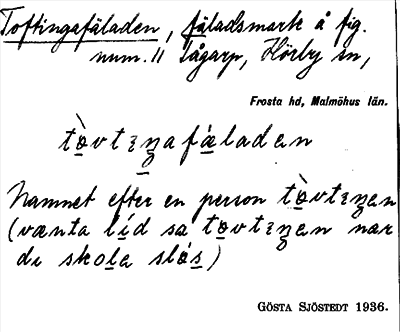 Toftingafäladen, fäladsmark å fig.
num. 11 Lågarp, Hörby sn,
Frosta hd, Malmöhus län.
tòvtɪŋafǽladən
Namnet efter en person tòvtɪŋən
(vænta líd sa tòvtɪŋən nær
di skola slás)
GÖSTA SJÖSTEDT 1936.